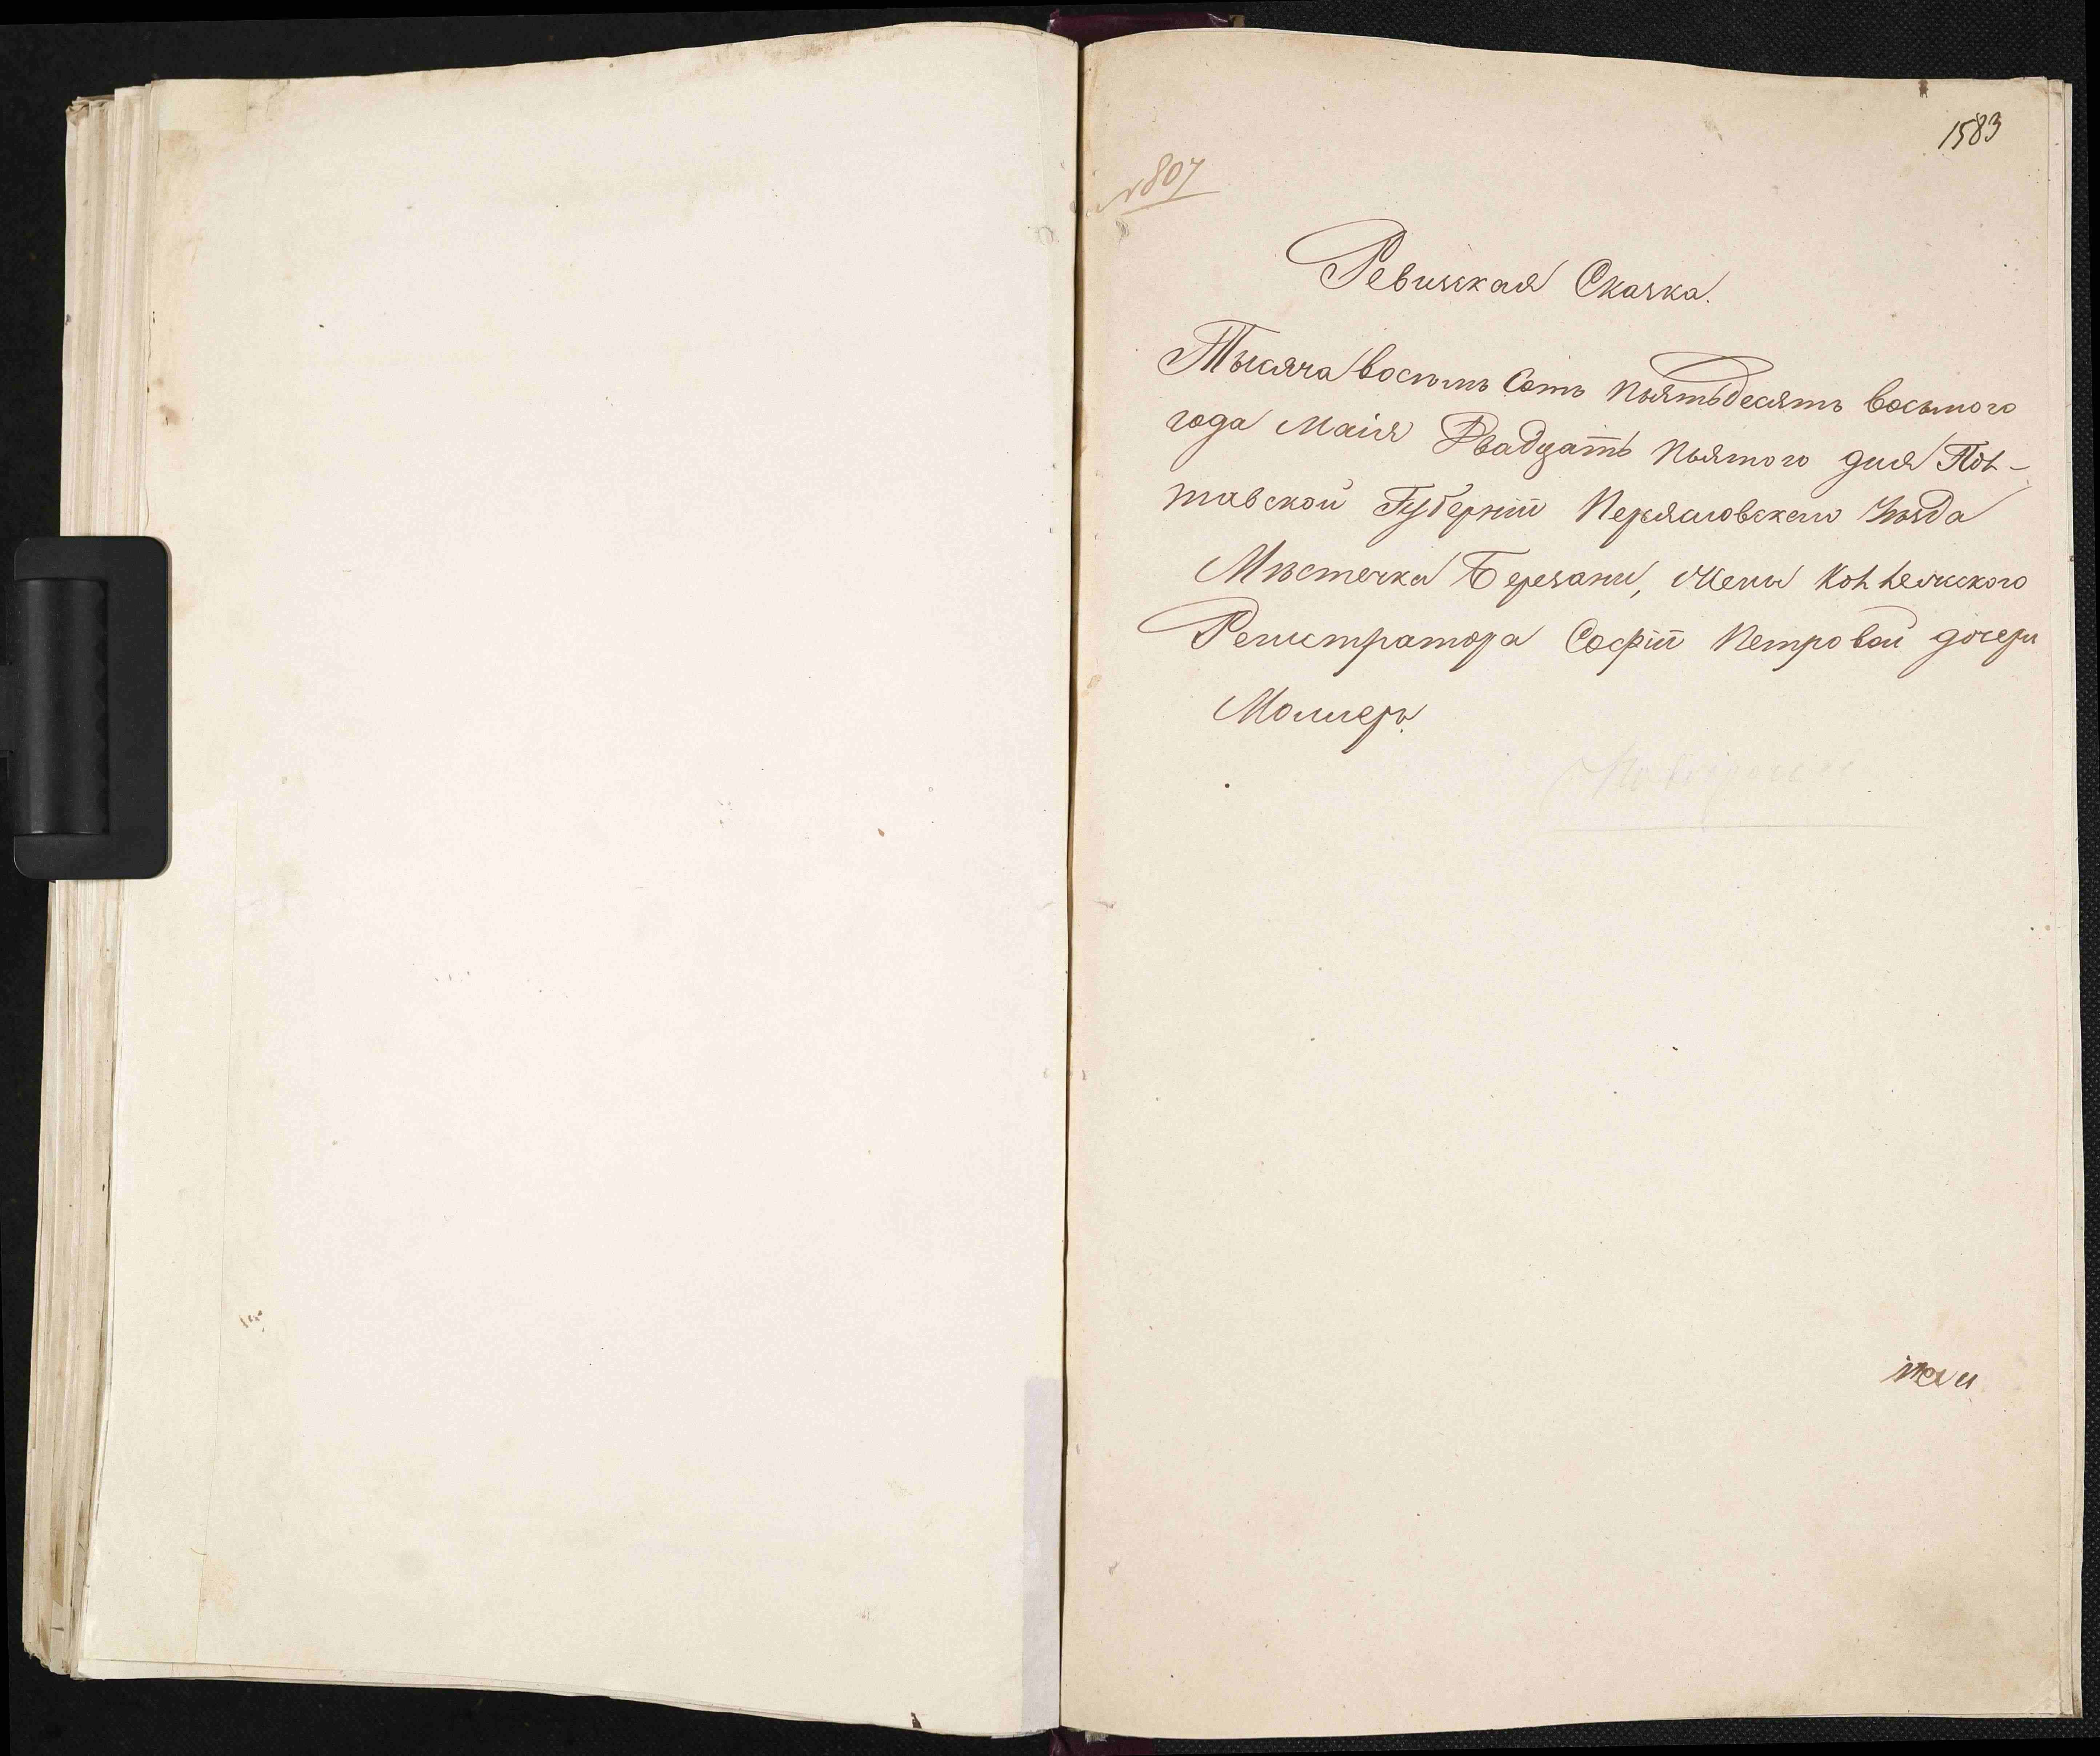 1583
№807
Ревизская Сказка.
Тысяча восемь Сотъ пьятьдесятъ восьмого
года Маія Двадцать пьятого дня Пол-
тавской Губерніи Переяславского Уѣзда
Мѣстечка Березани, Жены Коллежского
Регистратора Софіи Петровой дочери
Моллеръ.